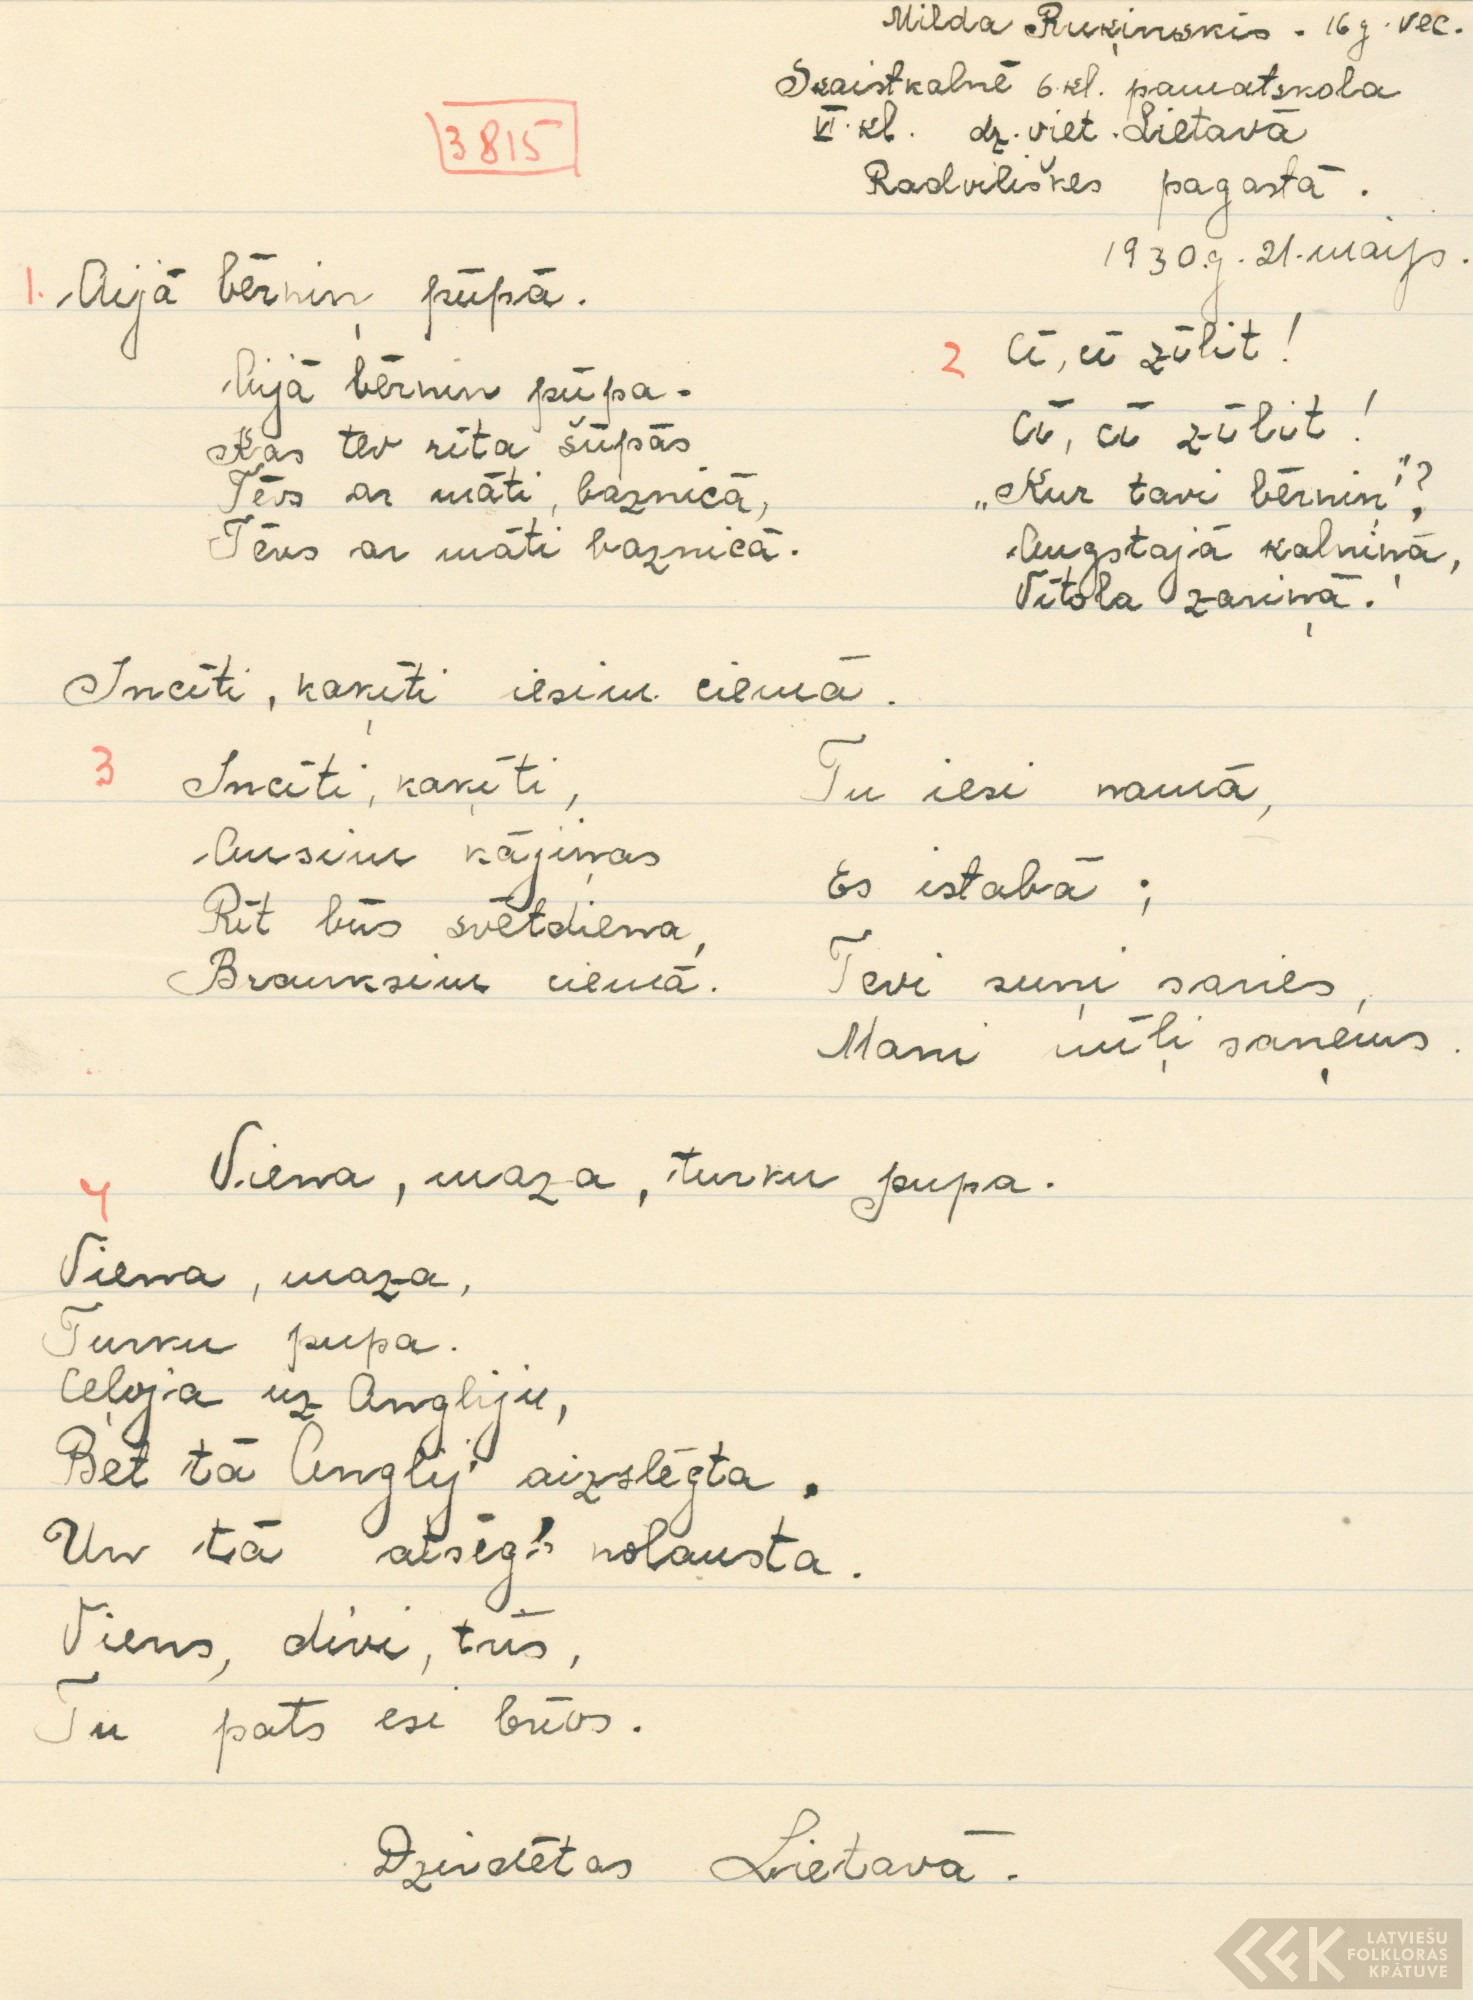 Milda Ruķinskis. 16 g. vec.
Skaistkalnē 6.kl. pamatskola
VI. kl. dz. viet. Lietavā
Radviliškes pagastā.
1930.g. 21. maijs.
3815
1. Aijā bērniņ pūpā.
Aijā bērnin pūpa.
Kas tev rīta šūpās
Tēvs ar māti, baznīcā,
Tēvs ar māti baznīcā.
2 Cī, cī zīlīt!
Cī, cī zīlīt!
„Kur tavi bērniņ"?
Augstajā kalniņā,
Vītola zariņā.
Incīti, kaķīti iesim ciemā.
3 Incīti, kaķīti,
Ausim kājiņas
Rīt būs svētdiena,
Brauksim ciemā.
Tu iesi namā,
Es istabā;
Tevi suņi saries,
Mani mīļi saņems.
4 Viena, maza, turku pupa.
Viena, maza,
Turku pupa.
Ceļoja uz Angliju,
Bet tā Anglij' aizslēgta.
Un tā atslēg' nolausta.
Viens, divi, trīs,
Tu pats esi brīvs.
Dzirdētas Lietavā.
LATVIEŠU
FOLKLORAS
KRĀTUVE